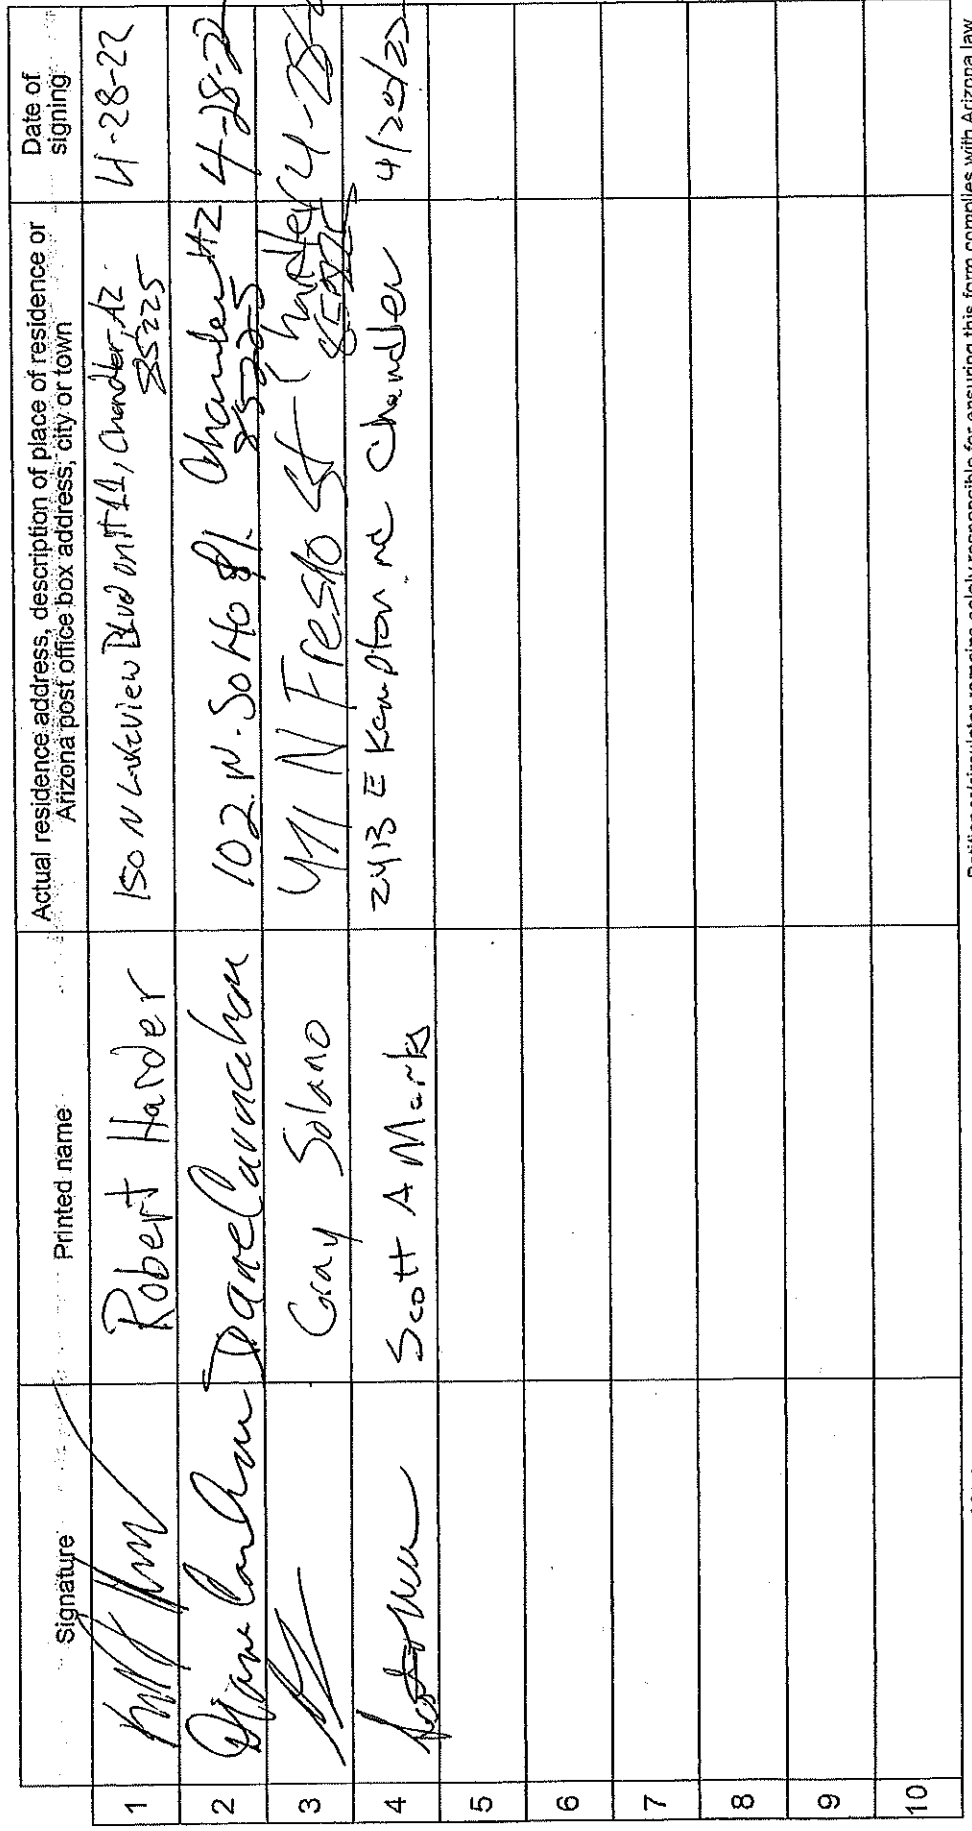 Signature Printed name Actual residence address, description of place of residence or Arizona post office box address, city or town Date of signing
1 Robert Harder 150 N Lakeview Blvd unit 11, Chandler, AZ 85225 4-28-22
2 102 N. SoHo Pl. Chandler AZ 85225 4-28-22
3 Gray Solano 411 N Fresno St Chandler 85225 4-28-
4 Scott A Marks 2413 E Kempton rd Chandler
5
6
7
8
9
10
Petition circulator remains solely responsible for ensuring this form complies with Arizona law